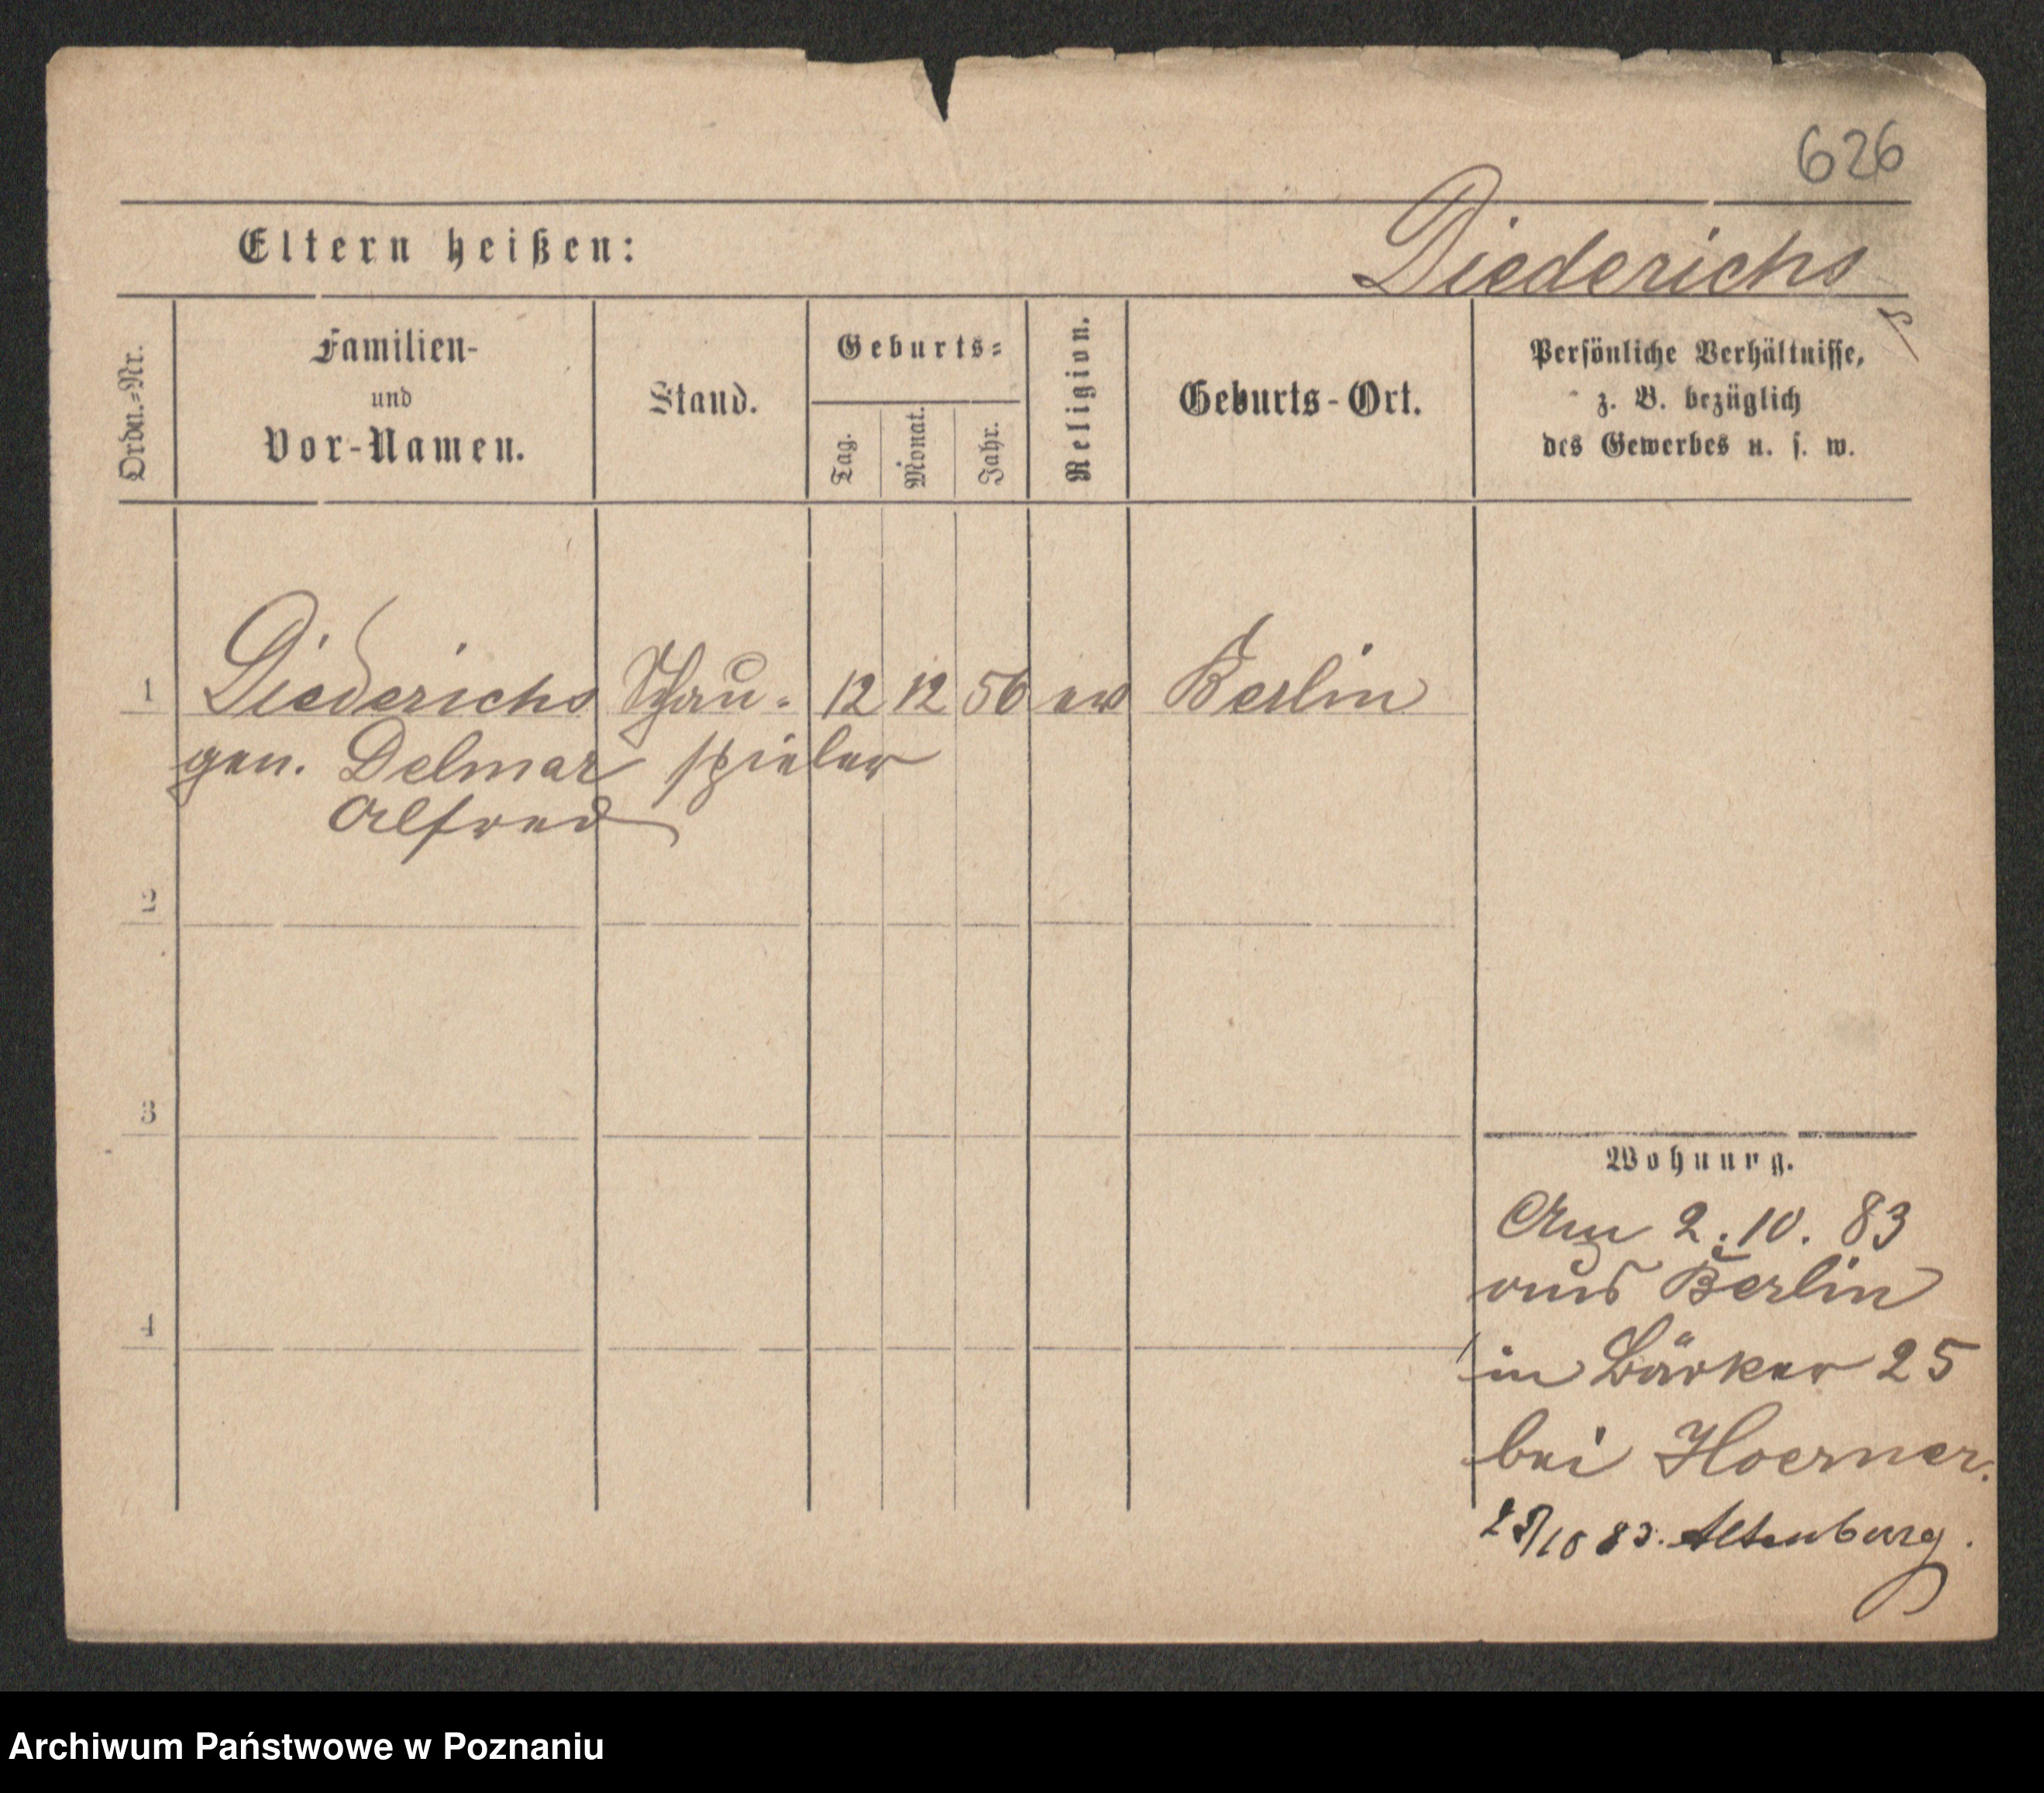 626
Eltern heißen:
Diederichs
Ordn.-Nr.
Familien-
und
Vor-Namen.
Stand.
Geburts-
Tag.
Monat.
Jahr.
Religion.
Geburts-Ort.
Persönliche Verhältnisse,
z. B. bezüglich
des Gewerbes u. s. w.
1 Diederichs Schau- 12 12 56 ev Berlin
gen. Delmar spieler
Alfred
2
3
4
Wohnung.
Am 2. 10. 83
aus Berlin
in Bärker 25
bei Hoerner.
10 83. Altenburg.
Archiwum Państwowe w Poznaniu